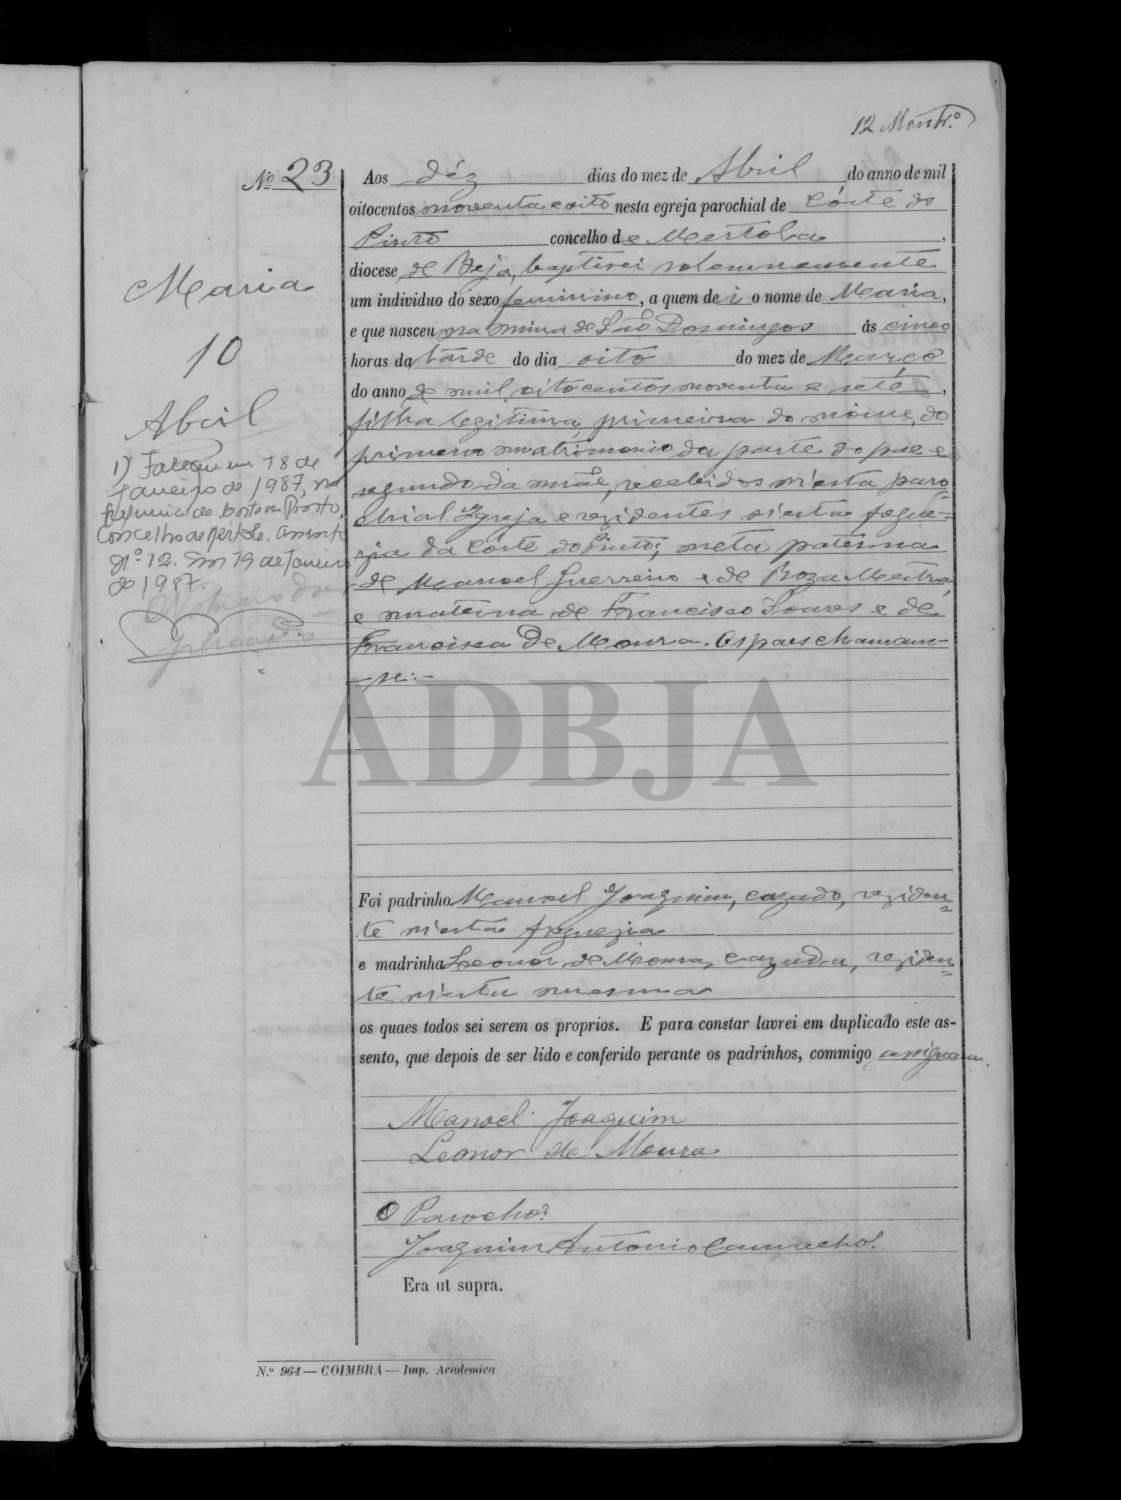 12 Montr.º
Nº 23
Maria
10
Abril
1) Faleceu em 18 de
Janeiro de 1987, na
freguesia de Corte do Pinto,
Concelho de Mértola. Assento
nº 12. Em 19 de Janeiro
de 1987.
Aos déz dias do mez de Abril do anno de mil
oitocentos noventa e oito nesta egreja parochial de Córte do
Pinto concelho de Mertola,
diocese de Beja, baptisei solemnemente
um individuo do sexo feminino, a quem dei o nome de Maria,
e que nasceu na mina de São Domingos ás cinco
horas da tarde do dia oito do mez de Março
do anno de mil oitocentos noventa e sete,
filha legitima, primeira do nome, do
primeiro matrimonio da parte do pae e
segundo da mãe, recebidos n'esta paro-
chial Igreja e rezidentes n'esta fregue-
zia da Córte do Pinto; neta paterna
de Manoel Guerreiro e de Roza Mestra,
e materna de Francisco Soares e de
Francisca de Moura. Os paes chamam-
-se:-
ADBJA
Foi padrinho Manoel Joaquim, cazado, reziden-
te n'esta freguezia
e madrinha Leonor de Moura, cazada, reziden-
te n'esta mesma
os quaes todos sei serem os proprios. E para constar lavrei em duplicado este as-
sento, que depois de ser lido e conferido perante os padrinhos, commigo assignam.
Manoel Joaquim
Leonor de Moura
O Parocho:
Joaquim Antonio Camacho.
Era ut supra.
N.º 964 — COIMBRA — Imp. Academica